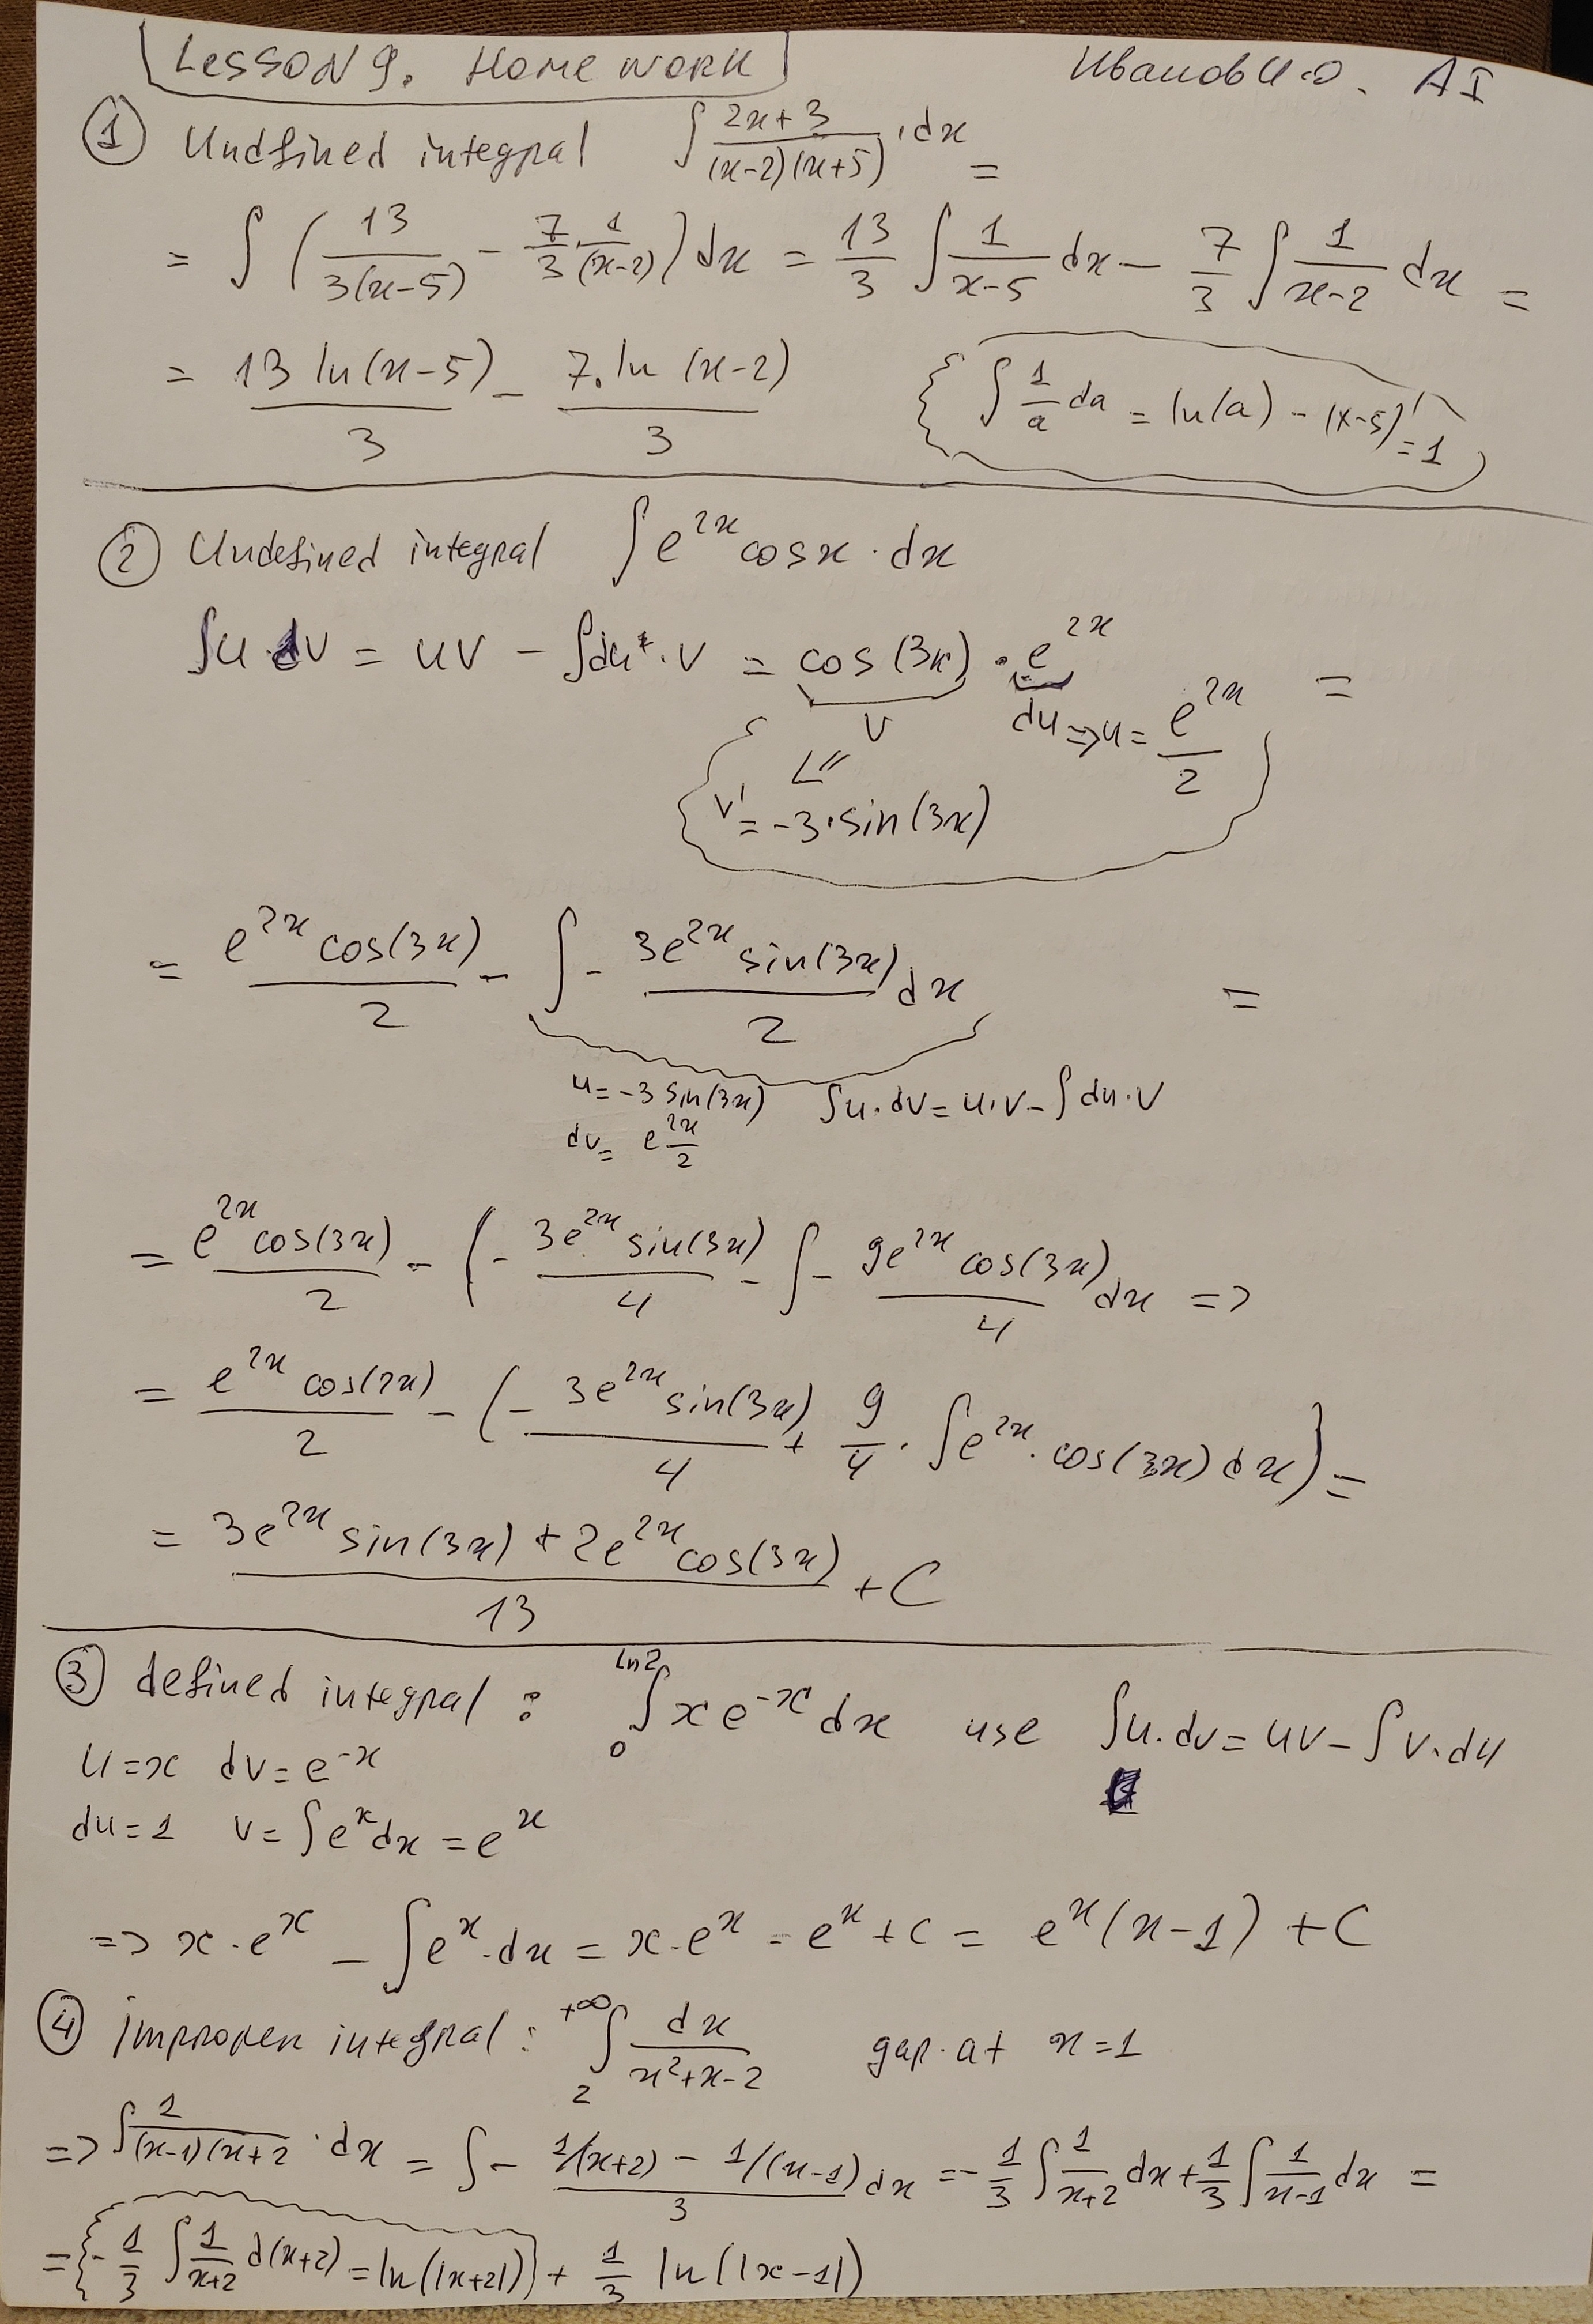 Lesson 9. Home work
Иванов И.О. AI
① Undfined integral ∫ (2x+3)/((x-2)(x+5)) · dx =
= ∫ (13/(3(x-5)) - 7/3 · 1/(x-2)) dx = 13/3 ∫ 1/(x-5) dx - 7/3 ∫ 1/(x-2) dx =
= 13 ln(x-5)/3 - 7·ln(x-2)/3
{∫ 1/a da = ln(a) - (x-5)' = 1}
② Undefined integral ∫ e^{2x} cosx · dx
∫u·dv = uv - ∫du·v = cos(3x) · e^{2x} =
v du => u = e^{2x}/2
v' = -3·sin(3x)
= e^{2x} cos(3x)/2 - ∫ - 3e^{2x} sin(3x)/2 dx =
u = -3 sin(3x) ∫u·dv = u·v - ∫du·v
dv = e^{2x}/2
= e^{2x} cos(3x)/2 - (- 3e^{2x} sin(3x)/4 - ∫ - 9e^{2x} cos(3x)/4 dx =>
= e^{2x} cos(2x)/2 - (- 3e^{2x} sin(3x)/4 + 9/4 · ∫e^{2x} · cos(3x) dx) =
= (3e^{2x} sin(3x) + 2e^{2x} cos(3x))/13 + C
③ defined integral : ∫_0^{ln2} x e^{-x} dx use ∫u·dv = uv - ∫v·du
u=x dv=e^{-x}
du=1 v=∫e^x dx = e^x
=> x·e^x - ∫e^x·dx = x·e^x - e^x + C = e^x(x-1) + C
④ improper integral : ∫_2^{+∞} dx/(x²+x-2) gap. at x=1
=> ∫ 1/((x-1)(x+2 · dx = ∫ - (1/(x+2) - 1/(x-1))/3 dx = - 1/3 ∫ 1/(x+2) dx + 1/3 ∫ 1/(x-1) dx =
= {- 1/3 ∫ 1/(x+2) d(x+2) = ln(|x+2|)} + 1/3 ln(|x-1|)